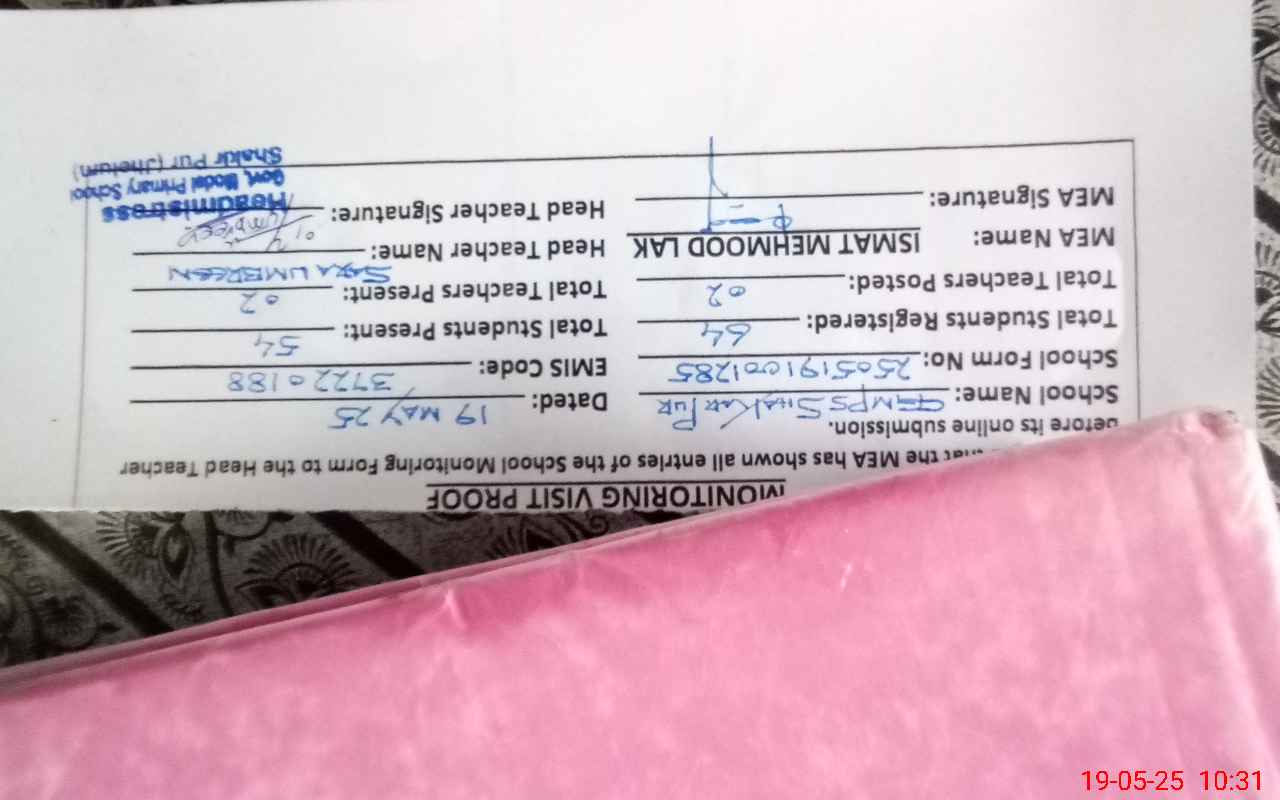 MONITORING VISIT PROOF
that the MEA has shown all entries of the School Monitoring Form to the Head Teacher
before its online submission.
School Name: GEMPS SHAKAR PUR Dated: 19 MAY 25
School Form No: 2505191001285 EMIS Code: 37220188
Total Students Registered: 64 Total Students Present: 54
Total Teachers Posted: 02 Total Teachers Present: 02
MEA Name: ISMAT MEHMOOD LAK Head Teacher Name: SARA UMBREEN
MEA Signature: Head Teacher Signature:
Headmistress
Govt, Model Primary School
Shakir Pur (Jhelum)
19-05-25 10:31